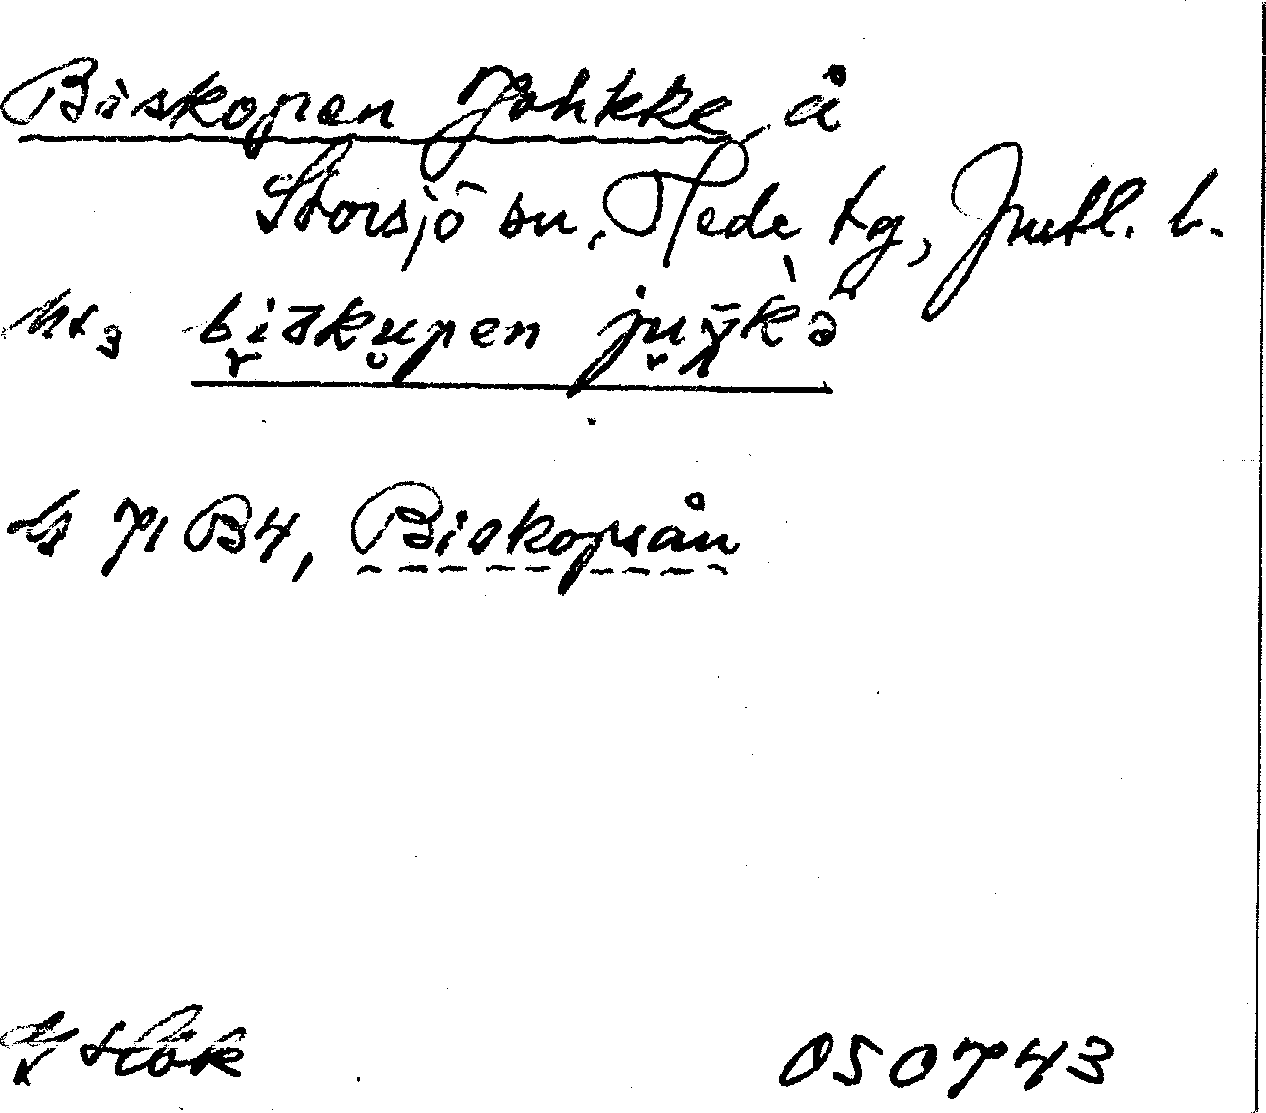 Biskopen Johkke å
Storsjö sn, Hede tg, Jmtl. l.
biskupen
71 B4, Biskopsån
050743